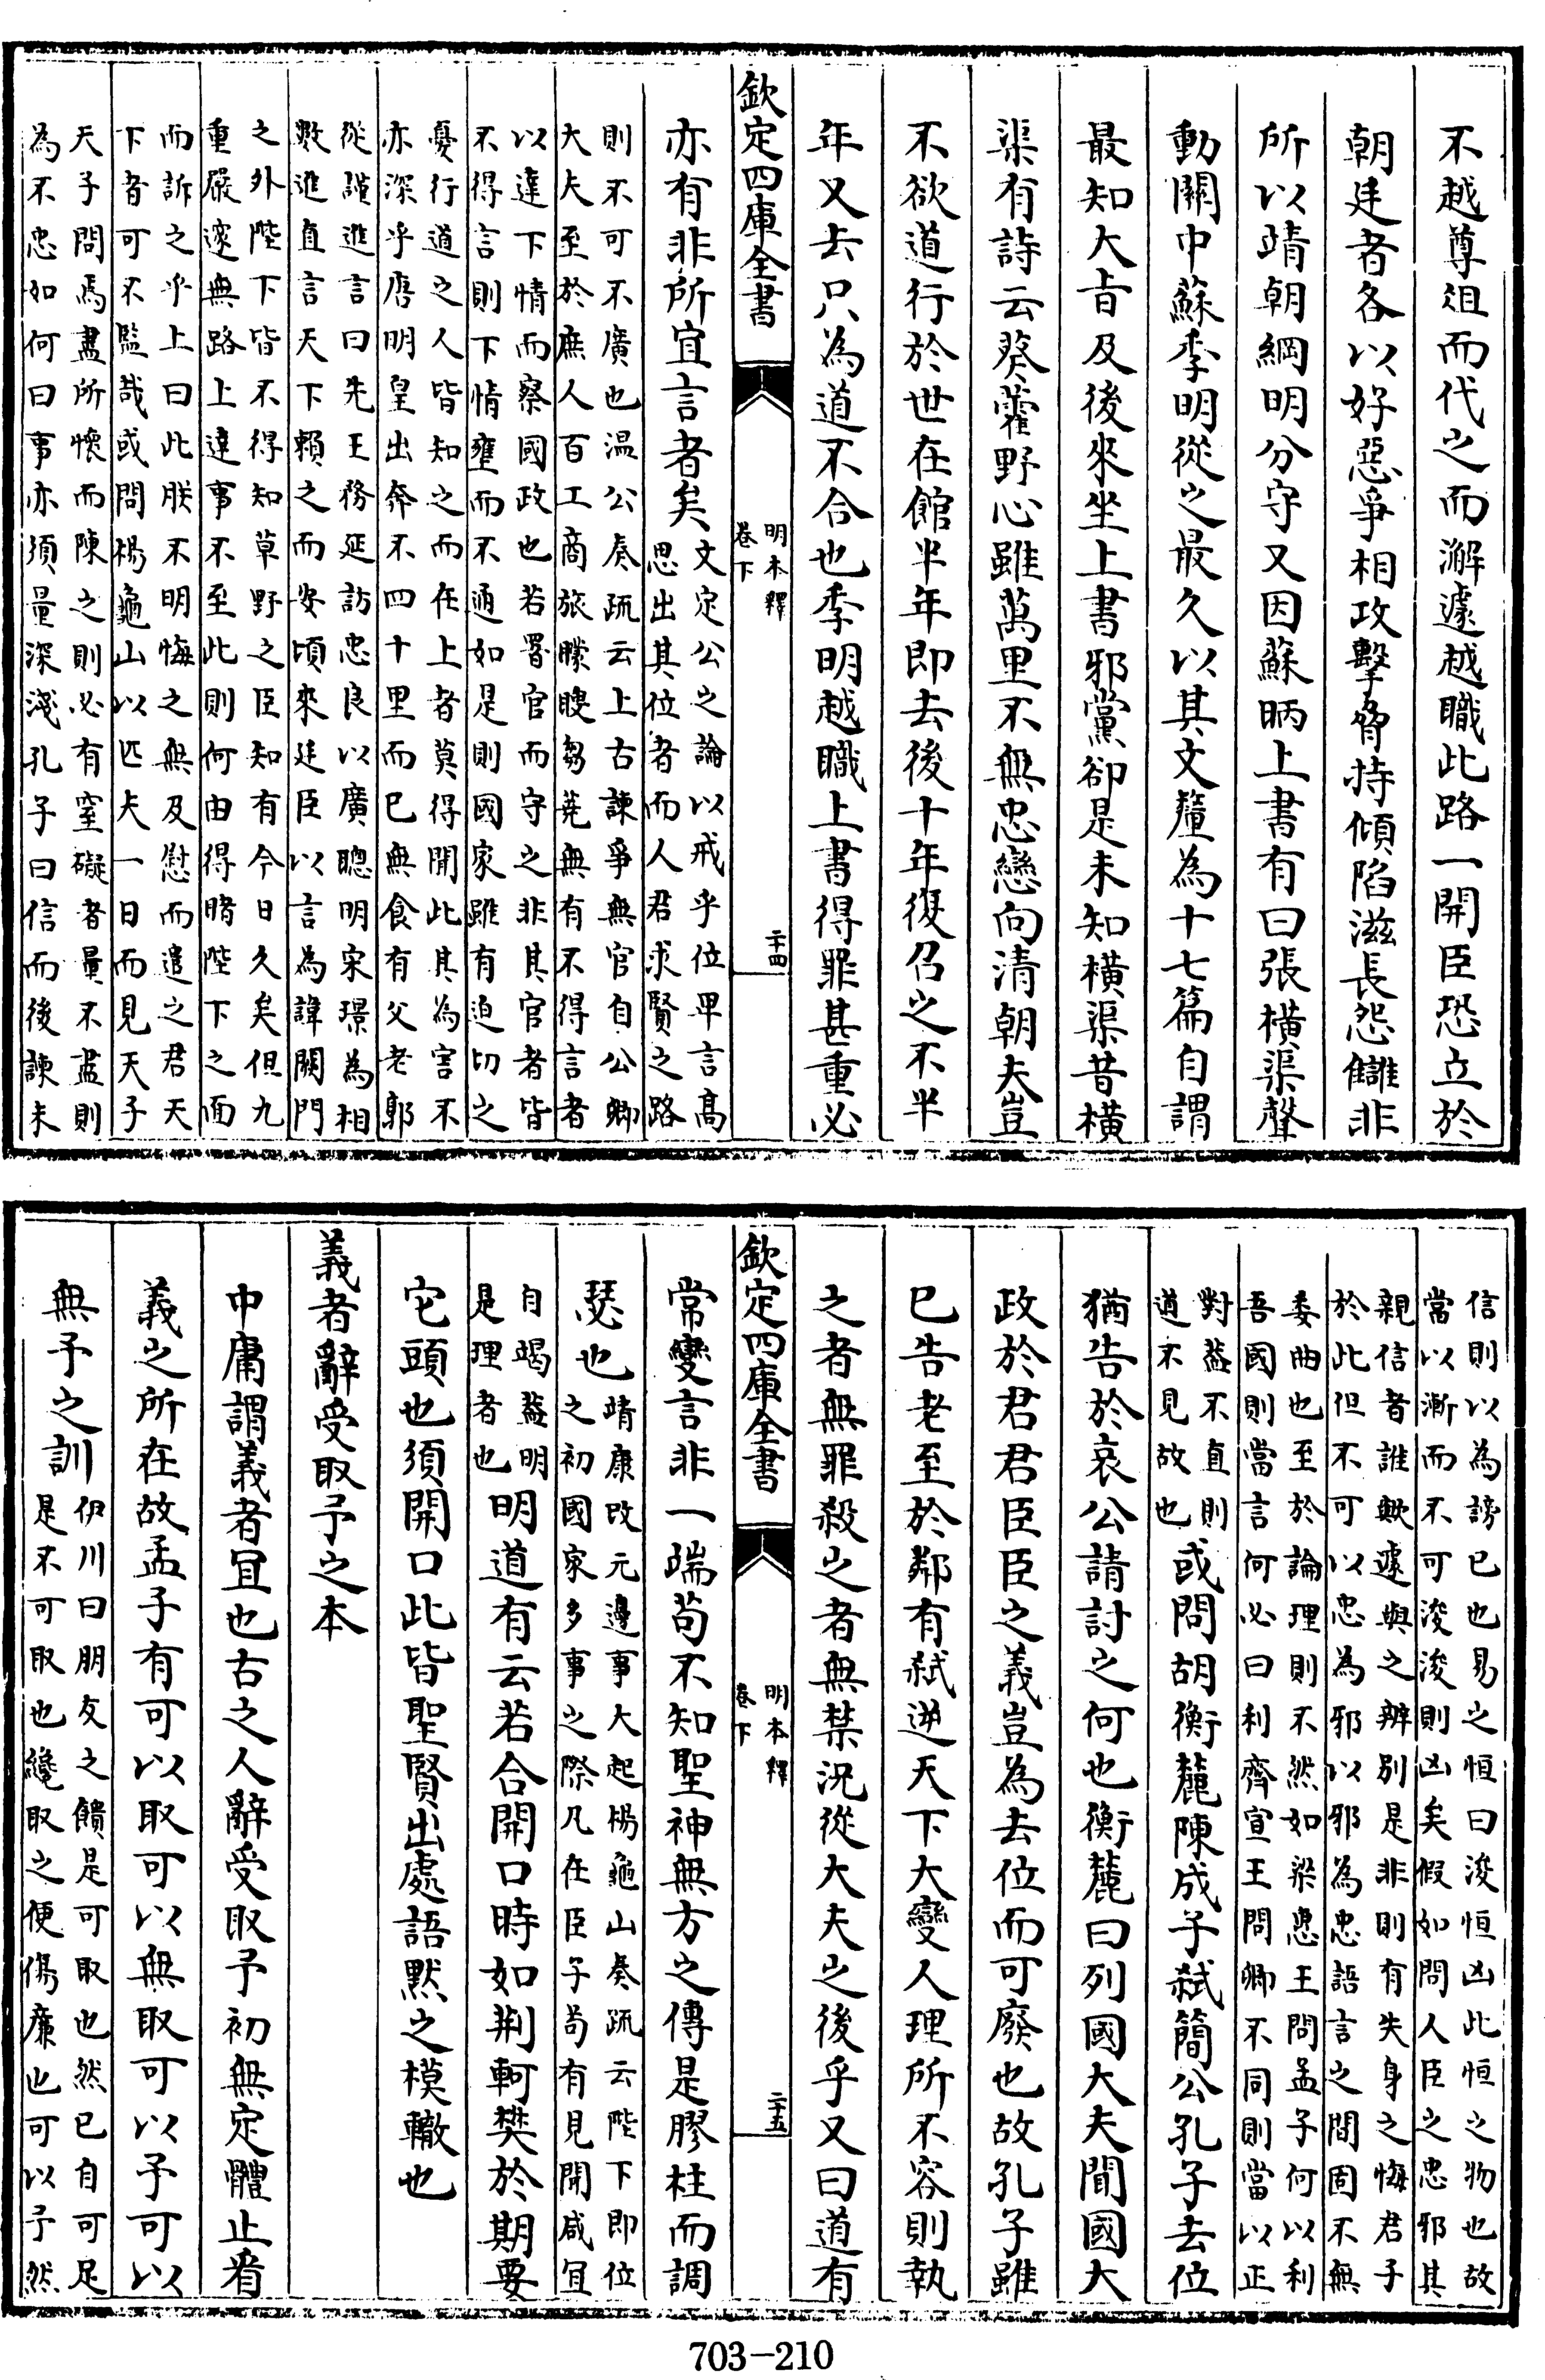 不越尊俎而代之而澥遽越職此路一開臣恐立於
朝廷者各以好惡爭相攻擊脅持傾陷滋長怨讎非
所以靖朝綱明分守又因蘇昞上書有曰張橫渠聲
動關中蘇季明從之最久以其文釐為十七篇自謂
最知大㫖及後來坐上書邪黨卻是未知橫渠昔橫
渠有詩云葵藿野心雖萬里不無忠戀向清朝夫豈
不欲道行於世在館半年即去後十年復召之不半
年又去只為道不合也季明越職上書得罪甚重必
欽定四庫全書
明本釋
卷下
二十四
亦有非所宜言者矣
文定公之論以戒乎位卑言高
思出其位者而人君求賢之路
則不可不廣也温公奏疏云上古諫爭無官自公卿
大夫至於庶人百工商旅矇瞍芻蕘無有不得言者
以達下情而察國政也若置官而守之非其官者皆
不得言則下情壅而不通如是則國家雖有迫切之
憂行道之人皆知之而在上者莫得聞此其為害不
亦深乎唐明皇出奔不四十里而已無食有父老郭
從謹進言曰先王務延訪忠良以廣聰明宋璟為相
數進直言天下賴之而安頃來廷臣以言為諱闕門
之外陛下皆不得知草野之臣知有今日久矣但九
重嚴邃無路上達事不至此則何由得睹陛下之面
而訴之乎上曰此朕不明悔之無及慰而遣之君天
下者可不監哉或問楊龜山以匹夫一日而見天子
天子問焉盡所懷而陳之則必有窒礙者量不盡則
為不忠如何曰事亦須量深淺孔子曰信而後諫未
信則以為謗已也易之恒曰浚恒凶此恒之物也故
當以漸而不可浚浚則凶矣假如問人臣之忠邪其
親信者誰歟遽與之辨別是非則有失身之悔君子
於此但不可以忠為邪以邪為忠語言之間固不無
委曲也至於論理則不然如梁惠王問孟子何以利
吾國則當言何必曰利齊宣王問卿不同則當以正
對葢不直則
道不見故也
或問胡衡麓陳成子弑簡公孔子去位
猶告於哀公請討之何也衡麓曰列國大夫聞國大
政於君君臣臣之義豈為去位而可廢也故孔子雖
已告老至於鄰有弑逆天下大變人理所不容則執
之者無罪殺之者無禁況從大夫之後乎又曰道有
欽定四庫全書
明本釋
卷下
二十五
常變言非一端茍不知聖神無方之傳是膠柱而調
瑟也
靖康改元邊事大起楊龜山奏疏云陛下即位
之初國家多事之際凡在臣子茍有見聞咸宜
自竭葢明
是理者也
明道有云若合開口時如荆軻樊於期要
它頭也須開口此皆聖賢出處語默之模轍也
義者辭受取予之本
中庸謂義者宜也古之人辭受取予初無定體止看
義之所在故孟子有可以取可以無取可以予可以
無予之訓
伊川曰朋友之饋是可取也然已自可足
是不可取也纔取之便傷廉也可以予然
703-210